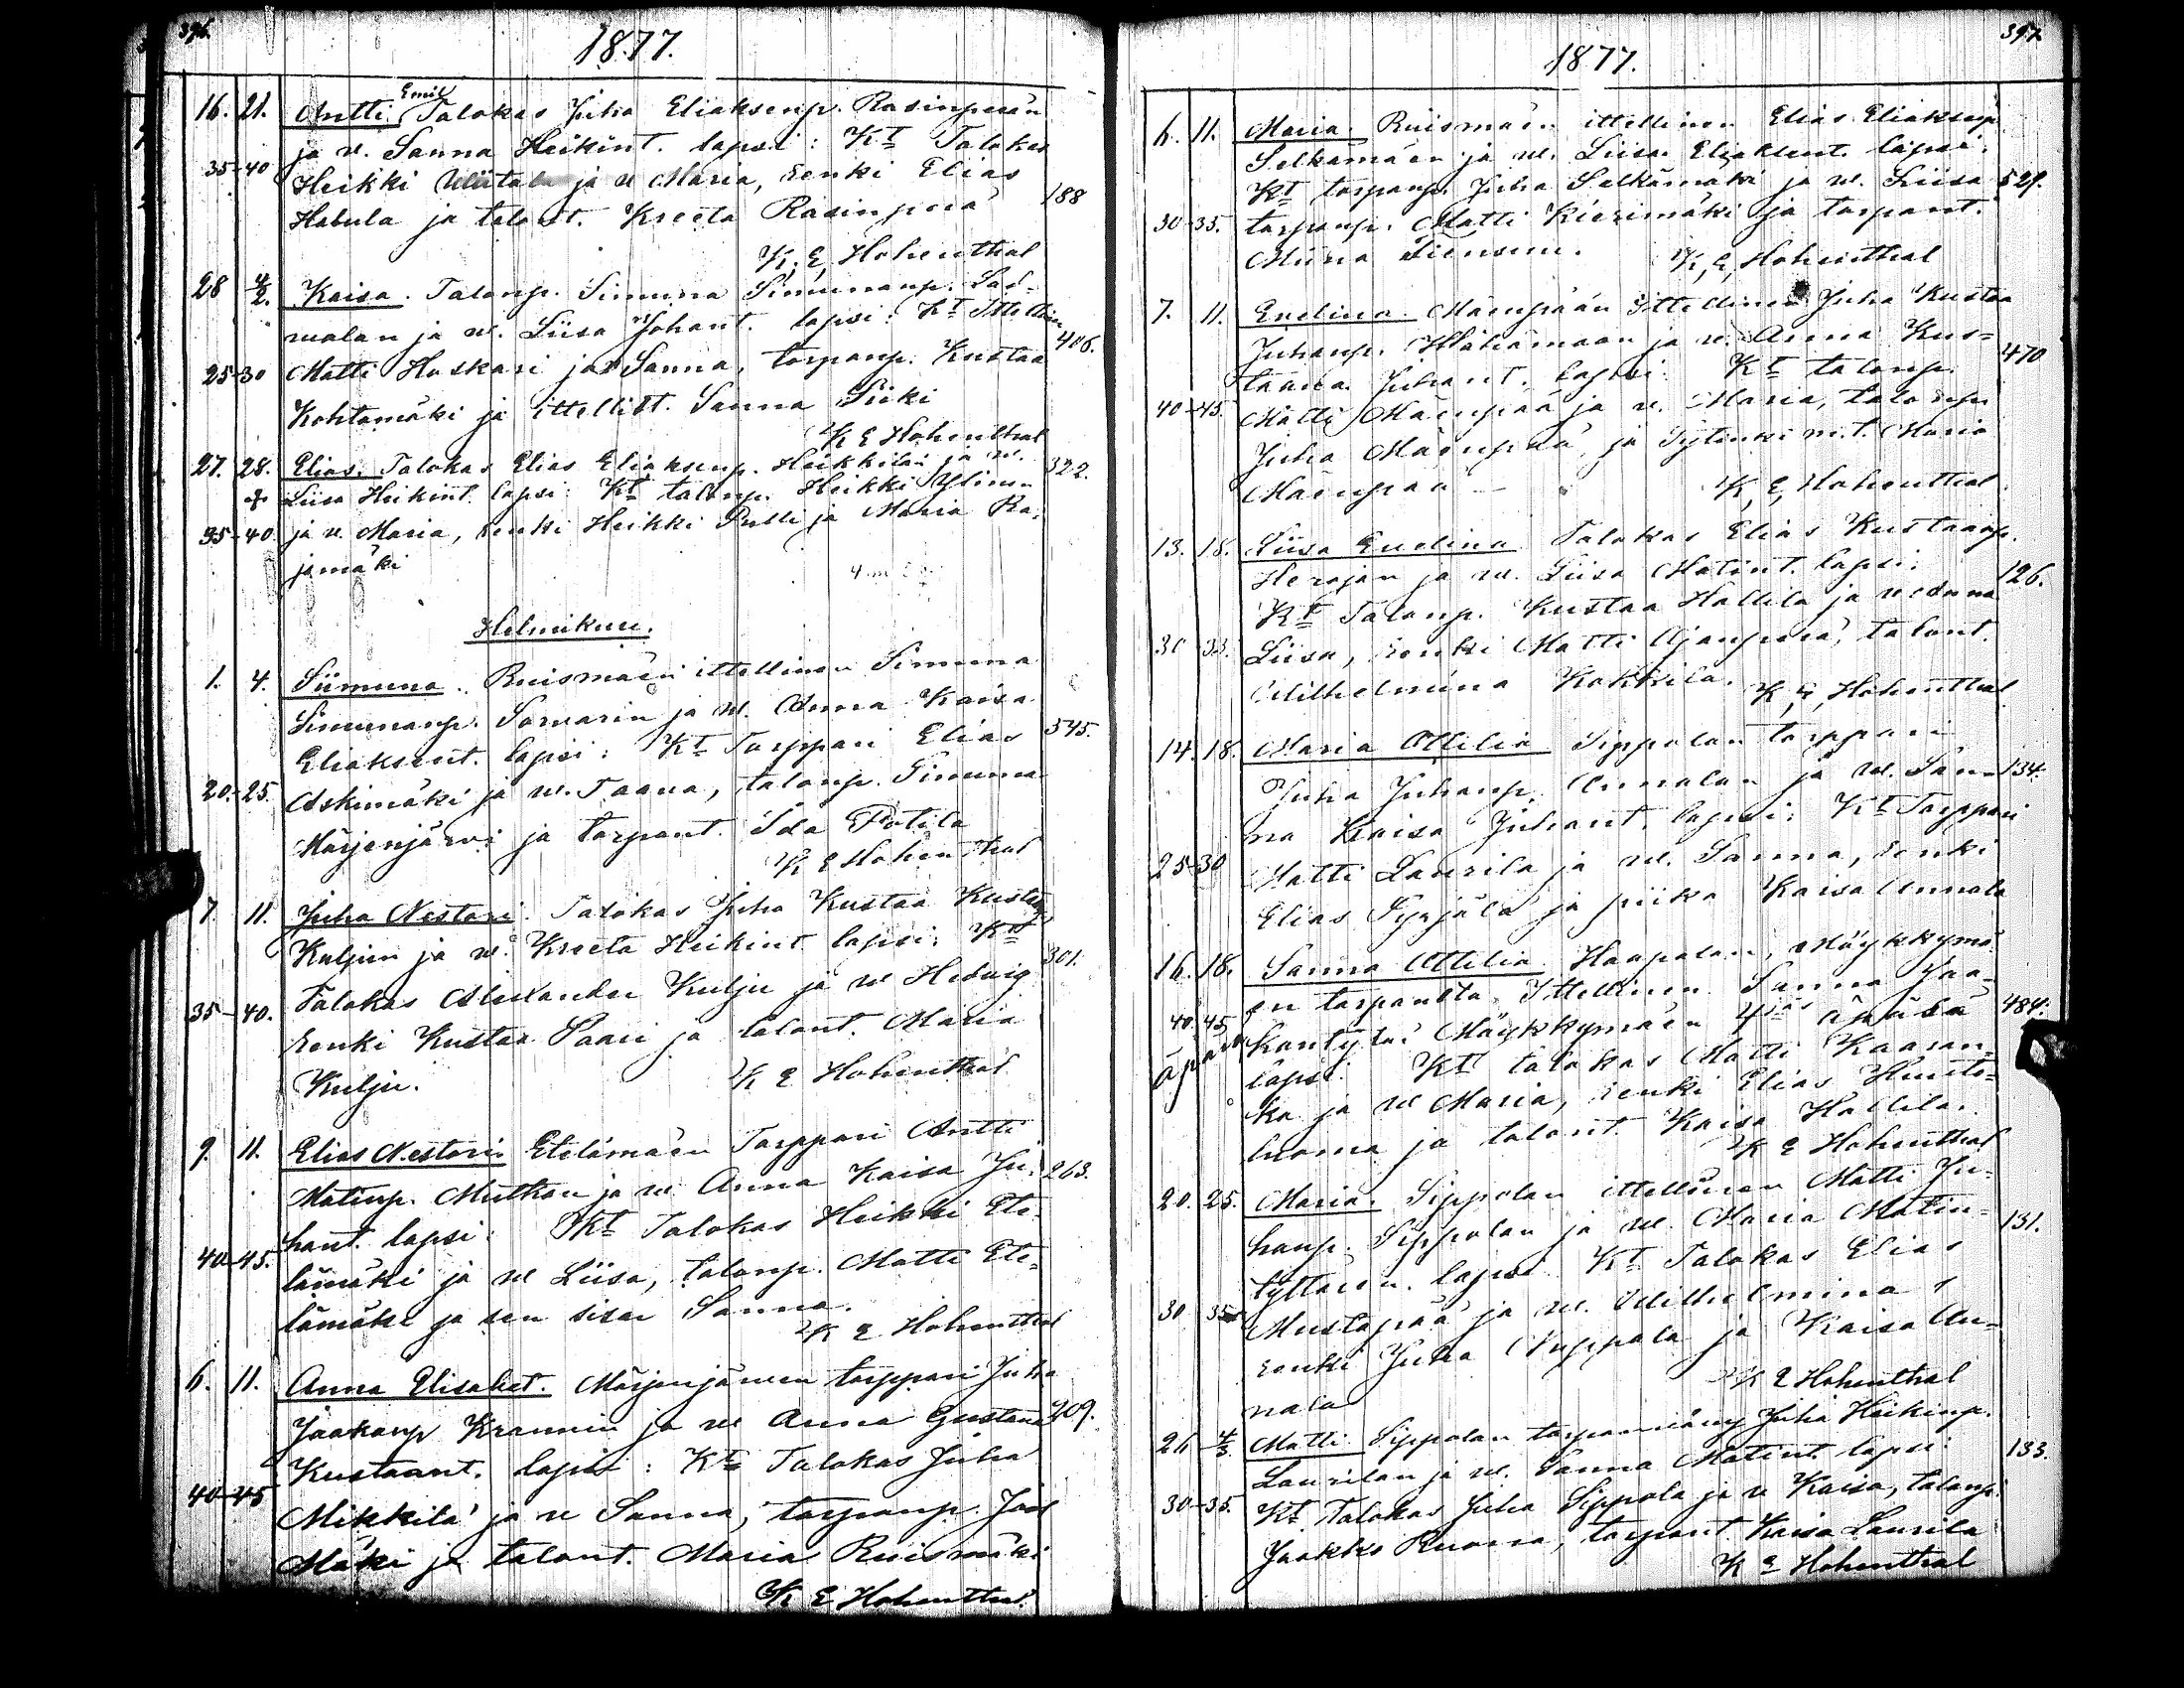 396.
1877.
16. 21. Antti Emil Talokas Juha Eliaksenp. Rasinperän
ja v. Sanna Heikint. lapsi: Kt Talokas
35-40 Heikki ja v Maria, renki Elias
Habula ja talont. Kreeta Rasinperä 188
K, E, Hohenthal
28 4/2. Kaisa. Talonp. Simuna Simunanp. Lad-
walan ja w. Liisa Johant. lapsi: Kt Ittellin 406.
25-30 Matti Huskari ja Sanna, torpanp. Kustaa
Kohtamäki ja ittellist. Sanna
K E Hohenthal
27. 28. Elias. Talokas Elias Eliaksenp. Heikkilän ja w. 322.
Liisa Heikint. lapsi: Kt talonp. Heikki Ylinen
35-40 ja v. Maria, renki Heikki Pulli ja Maria Ra-
jamäki
Helmikuu.
1. 4. Siimuna. Ruismäen ittellinen Simuna
Simunanp. Samarin ja w. Anna Kaisa
Eliaksent. lapsi: Kt Torppari Elias 545.
20.-25. Askimäki ja w. Taava, talonp. Simuna
Marjenjärwi ja torpant. Ida Potila
K E Hohenthal
7. 11. Juha Nestori. Talokas Juha Kustaa Kustaanp
Kuljun ja w. Kreeta Heikint lapsi: Kt 301.
35-40. Talokas Aleksander Kulju ja w Hedwig
renki Kustaa Saari ja talont. Maria
Kulju. K E Hohenthal
9. 11. Elias Nestori Etelämäen Torppari Antti
Matinp. Mutkan ja w. Anna Kaisa Ju- 263.
hant. lapsi: Kt Talokas Heikki Ete-
40-45. lämäki ja w Liisa, talonp. Matti Ete-
lämäki ja sen sisar Sanna.
K E Hohenthal
6. 11. Anna Elisabet. Marjenjärwen torppari Juha
Jaakonp Krannin ja w Anna Gustava 209.
Kustaant. lapsi: Kt Talokas Juha
40-45 Mikkilä ja w Sanna, torpanp. Joel
Mäki ja talont. Maria Ruismäki
K E Hohenthal
397.
1877.
6. 11. Maria. Ruismäen ittellinen Elias Eliaksenp.
Selkämäen ja w. Liisa Eliaksent. lapsi:
Kt torpanp. Juha Selkämäki ja w. Liisa 529.
30-35. torpanp. Matti Kierimäki ja torpant.
Miina Tiensuu. K, E, Hohenthal
7. 11. Evelina. Mäenpään Ittellinen Juha Kustaa
Juhanp. Hähämaan ja w. Anna Kus-
taava Juhant. lapsi: Kt talonp. 470
40-45. Matti Mäenpää ja w. Maria, talonp
Juha Mäenpää, ja Sytinki m.t. Maria
Mäenpää K, E, Hohenthal
13. 18. Liisa Evelina Talokas Elias Kustaanp.
Herajan ja w. Liisa Matint. lapsi: 126.
Kt Talonp. Kustaa Hallila ja
Liisa, renki Matti Ojanperä, talont.
Wilhelmina Kokkila. K, E, Hohenthal
14. 18. Maria Ottilia Sippolan torppari
Juha Juhanp. Annalan ja w. San- 134.
na Kaisa Juhant. lapsi: Kt Torppari
25-30 Matti Laurila ja w. Sanna, renki
Elias Pyrjälä ja piika Kaisa Annala
16. 18. Sanna Ottilia Haapalan, Mäykkymä-
en torpanalta. Ittellinen Sanna Jaa-
40.45 kontytär Mäykkymäen äpärä 484.
äpärä lapsi. Kt talokas Matti Kaaran-
ka ja w Maria, renki Elias Huuto-
luoma ja talont. Kaisa Hallila.
K E Hohenthal
20. 25. Maria. Sippolan ittellinen Matti Ju-
hanp. Sippolan ja w. Maria Matin- 131.
tyttären. lapsi Kt Talokas Elias
30 35 Mustapää ja w. Wilhelmina
renki Juha Nuppola ja Kaisa An-
nala K E Hohenthal
26 4/3. Matti Sippolan torpanwäwy Juha Heikinp.
Laurilan ja w. Sanna Matint. lapsi: 133.
30-35. Kt Talokas Juha Sippola ja w Kaisa, talonp.
Jaakko Ruona, torpant. Kaisa Laurila
K E Hohenthal